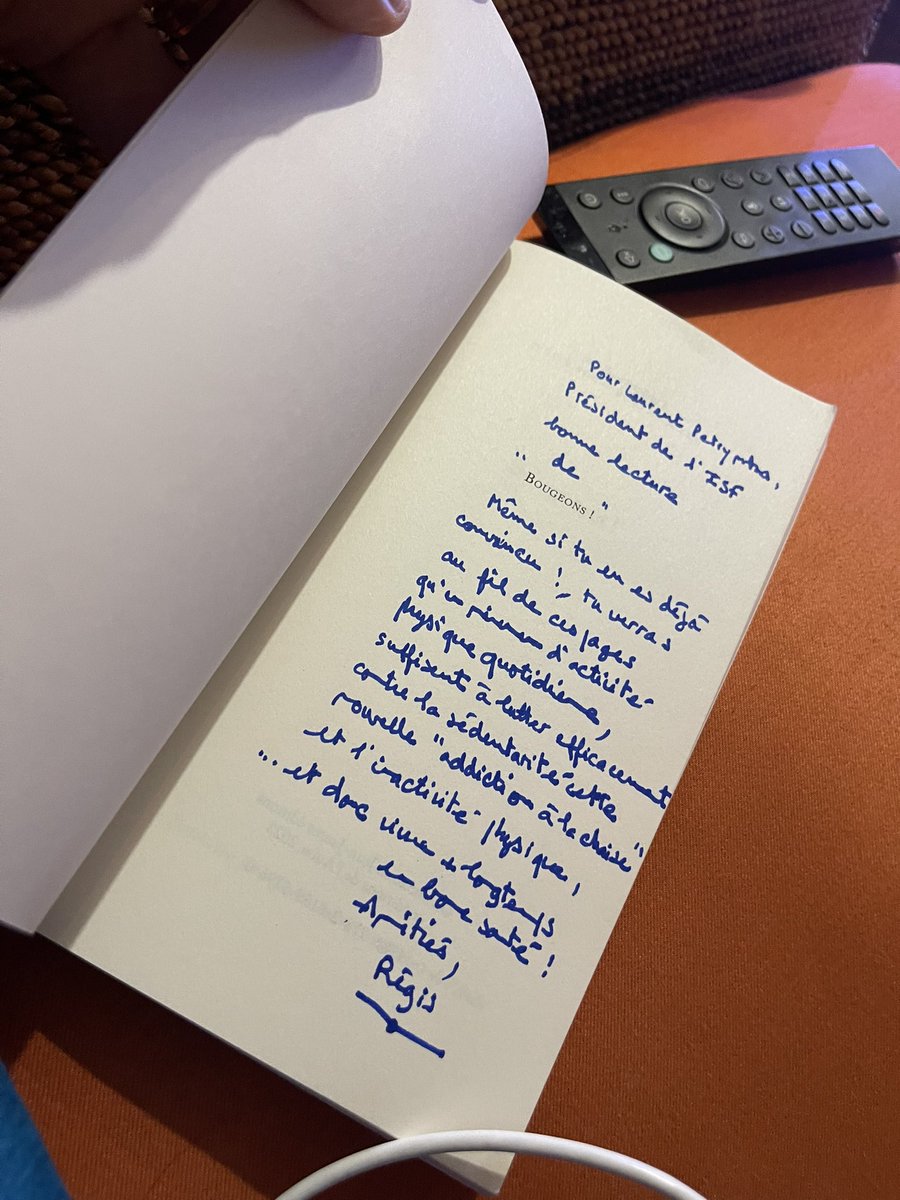 Pour Laurent Petrynka,
Président de l'ISF
bonne lecture
" de "
BOUGEONS !
Même si tu en es déjà
convaincu ! tu verras
au fil de ces pages
qu'un minimum d'activité
physique quotidienne,
suffisent à lutter efficacement
contre la sédentarité cette
nouvelle "addiction à la chaise"
et l'inactivité physique,
... et donc vivre + longtemps
en bonne santé !
Amitiés,
Régis